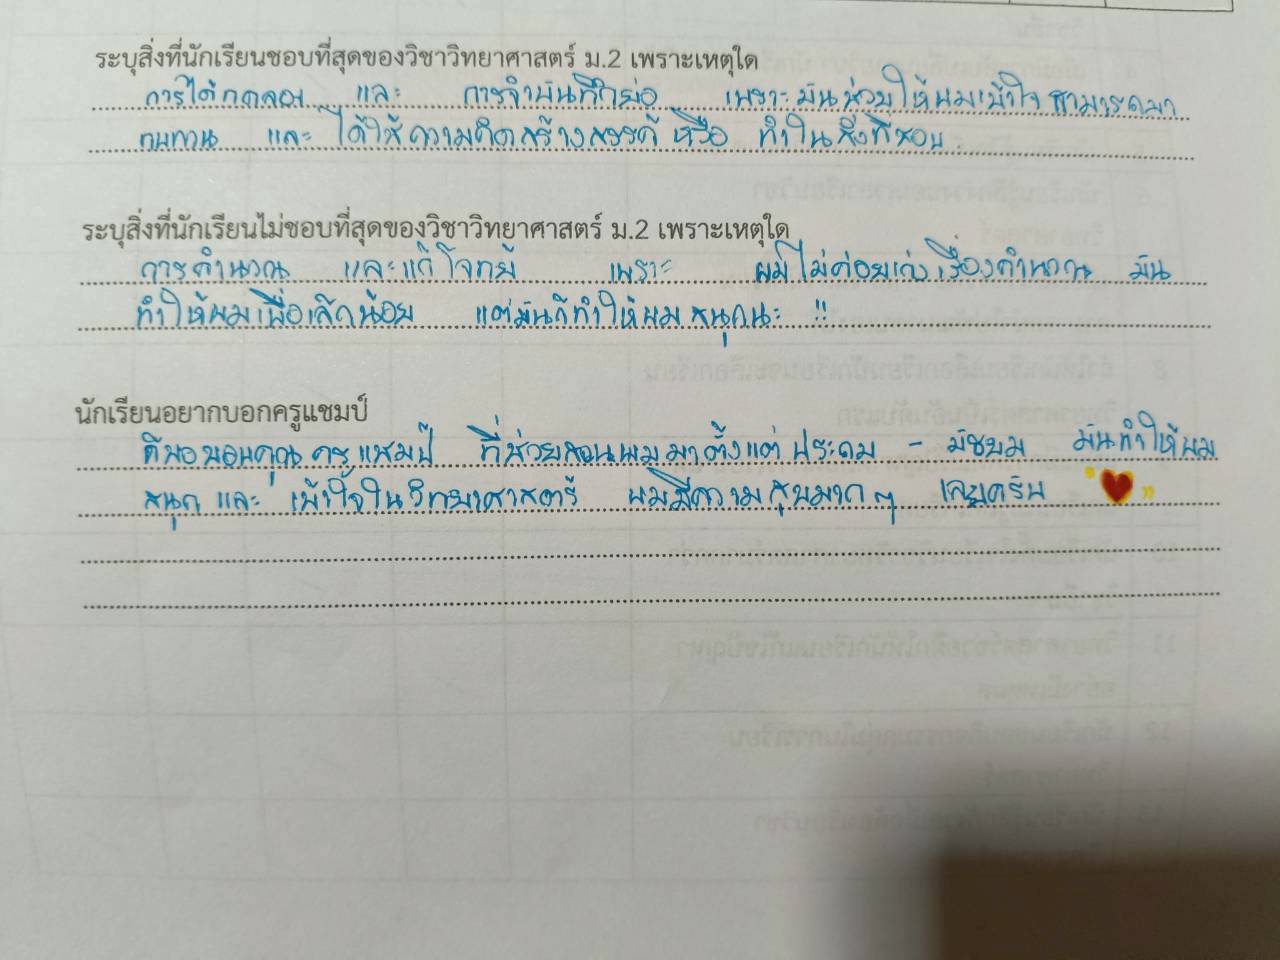 ระบุสิ่งที่นักเรียนชอบที่สุดของวิชาวิทยาศาสตร์ ม.2 เพราะเหตุใด
การได้ทดลอง และ การจำบันทึกย่อ เพราะมันช่วยให้ผมเข้าใจ สามารถมา
ทบทวน และ ได้ใช้ความคิดสร้างสรรค์ หรือ ทำในสิ่งที่ชอบ
ระบุสิ่งที่นักเรียนไม่ชอบที่สุดของวิชาวิทยาศาสตร์ ม.2 เพราะเหตุใด
การคำนวณ และแก้โจทย์ เพราะ ผมไม่ค่อยเก่งเรื่องคำนวณ มัน
ทำให้ผมเบื่อเล็กน้อย แต่มันก็ทำให้ผมสนุกนะ !!
นักเรียนอยากบอกครูแชมป์
คือขอขอบคุณ ครูแชมป์ ที่ช่วยสอนผมมาตั้งแต่ ประถม - มัธยม มันทำให้ผม
สนุก และ เข้าใจในวิทยาศาสตร์ ผมมีความสุขมาก ๆ เลยครับ "❤"